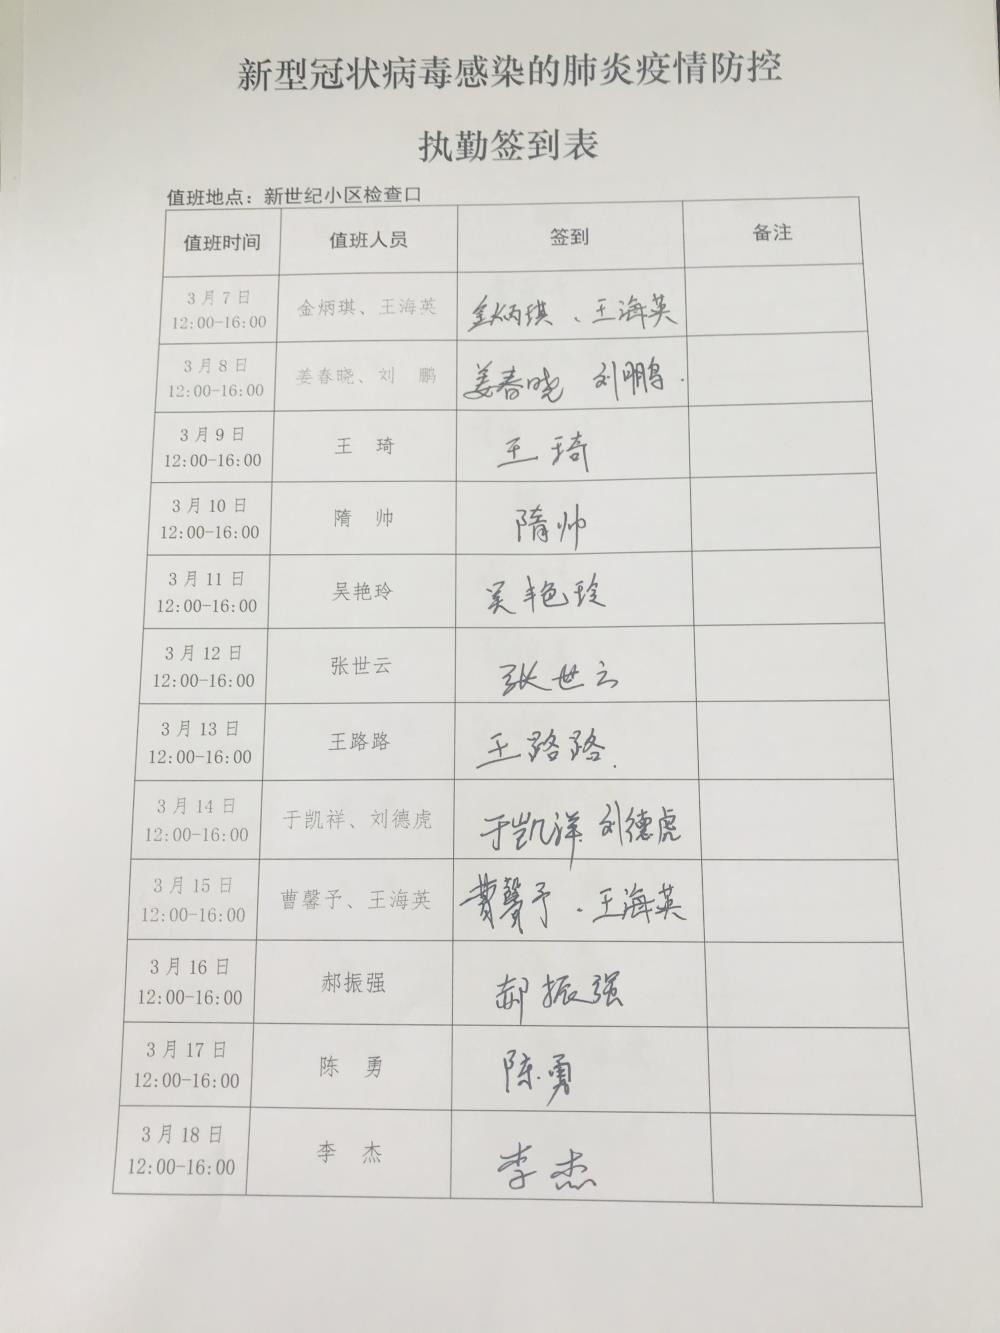 新型冠状病毒感染的肺炎疫情防控
执勤签到表
值班地点：新世纪小区检查口
值班时间 值班人员 签到 备注
3月7日
12:00-16:00 金炳琪、王海英 金炳琪、王海英
3月8日
12:00-16:00 姜春晓、刘 鹏 姜春晓 刘鹏.
3月9日
12:00-16:00 王 琦 王琦
3月10日
12:00-16:00 隋 帅 隋帅
3月11日
12:00-16:00 吴艳玲 吴艳玲
3月12日
12:00-16:00 张世云 张世云
3月13日
12:00-16:00 王路路 王路路.
3月14日
12:00-16:00 于凯祥、刘德虎 于凯祥 刘德虎
3月15日
12:00-16:00 曹馨予、王海英 曹馨予、王海英
3月16日
12:00-16:00 郝振强 郝振强
3月17日
12:00-16:00 陈 勇 陈勇
3月18日
12:00-16:00 李 杰 李杰